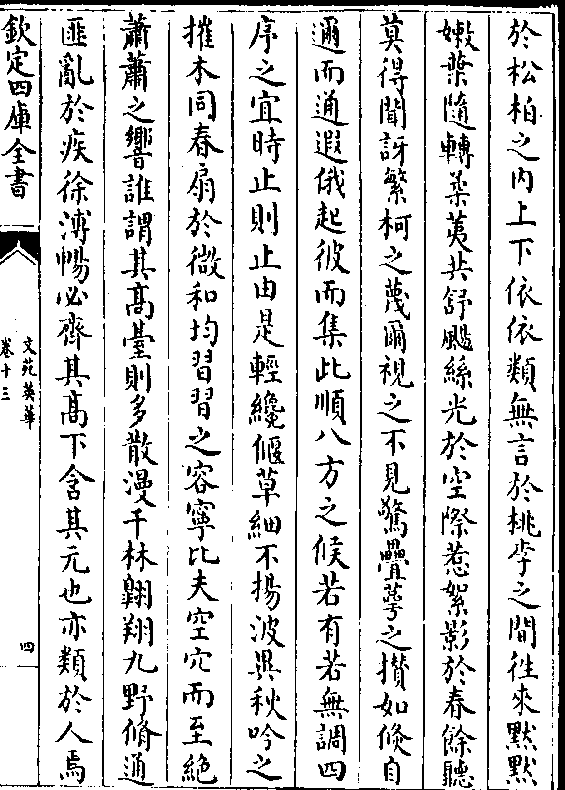 於松柏之内上下依依類無言於桃李之間往來默默
嫩葉隨轉柔荑共舒颺絲光於空際惹絮影於春餘聽
莫得聞訝繁柯之蔑爾視之不見驚疊蕚之攅如倐自
邇而通遐俄起彼而集此順八方之候若有若無調四
序之宜時止則止由是輕纔偃草細不揚波異秋吟之
摧本同春扇於微和均習習之容寧比夫空穴而至絶
蕭蕭之響誰謂其髙臺則多散漫千林翺翔九野脩通
匪亂於疾徐溥暢必齊其髙下含其元也亦類於人焉
欽定四庫全書
文苑英華
卷十三
四